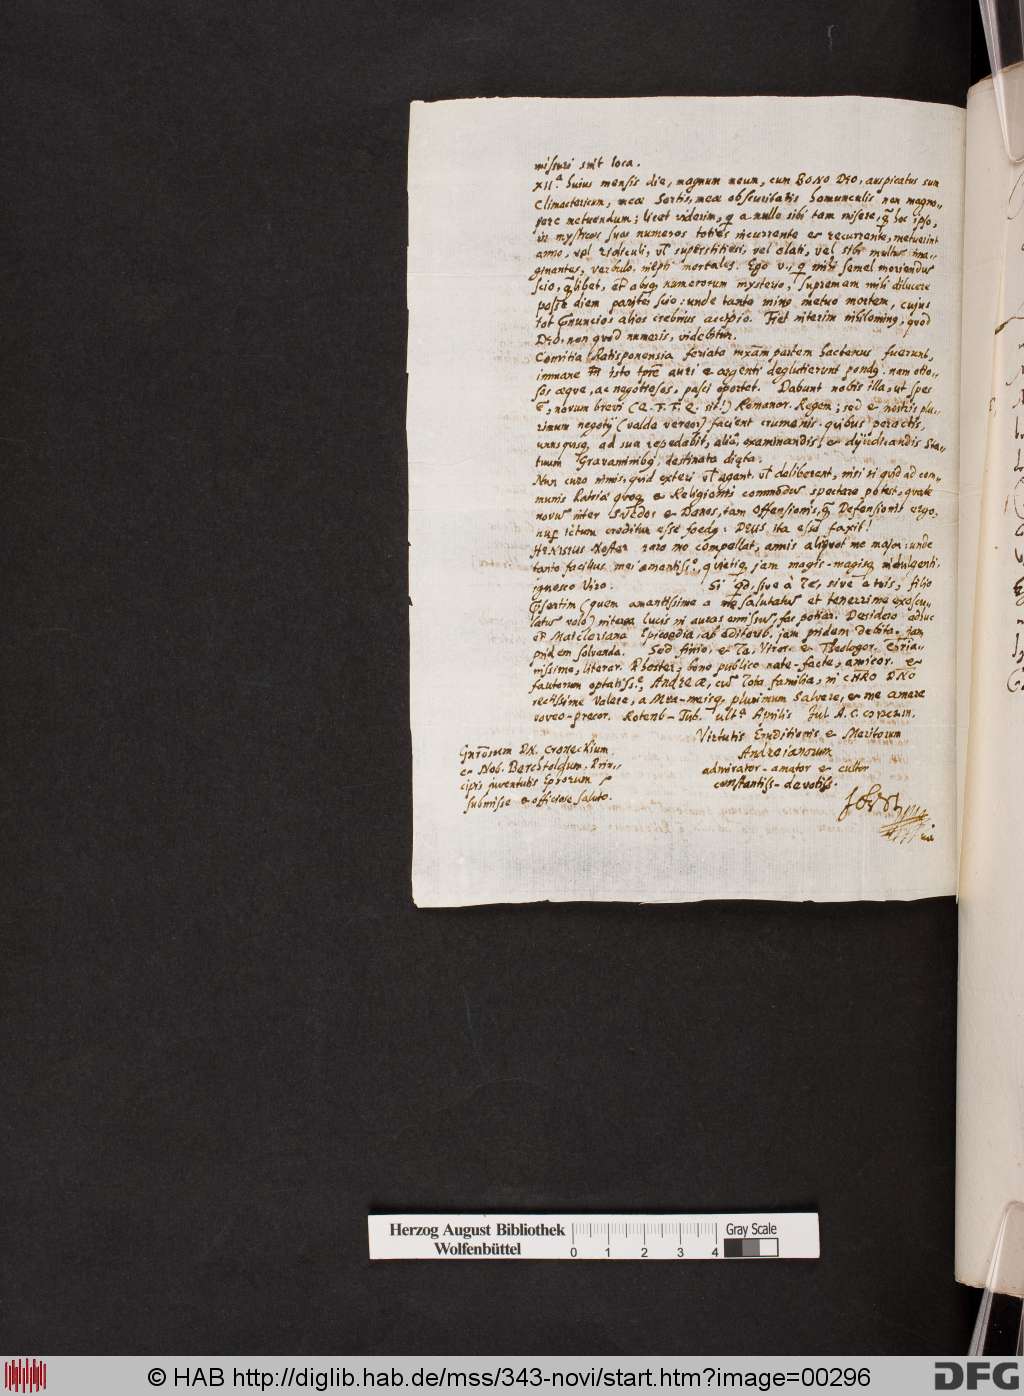 misturi sint loca.
XII.ª huius mensis die, magnum meum, cum BONO DEO, auspicatus sum
Climactericum, meae Sortis, meae obscuritatis homuncelis non magno-
pere metuendum; licet viderim, a nullo sibi tam misere, hoc ipso,
in mysticos suos numeros toties incurrente et recurrente, metuerint
anno, vel ridiculi, vel superstitiosi, vel elati, vel sibi multus ima-
ginantes, inepti mortales. Ego v., mihi semel moriendus
scio, et absq numerorum mysterio, supremam mihi dilucere
posse diem pariter scio: unde tanto minus metuo mortem, cujus
tot alios crebrius accipio. Fiet interim nihilominq, quod
DEO, non quod numeris, videbitur.
Convitia Ratisponensia feriata partem hactenus fuerunt,
immane isto auri et argenti deglutierunt pondq. nam otio-
sos aeque, ac negotiosos, pasci oportet. Dabunt nobis illa, ut spes
ē, novum brevi (Q. F. F. Q. sit!) Romanor. Regem; sed et nostris plu-
rimum negotij (valde vereor) facient crumenis. quibus peractis,
unusquisq, ad sua repedabit, alia, examinandis et dijudicandis Sta-
tuum Gravaminibq, destinata
Nun curo nimis, quid exteri vel agent, vel deliberent, nisi si quid ad com-
munis Patriae quoq et Religionis commodum spectare potest, quale
novum inter Suedos et Danos, tam Offensionis, Defensionis ergo,
nup ictum creditur esse foedq: DEUS ita esse faxit!
HENISIUS Noster raro me compellat, annis aliquot me major: unde
tanto facilius mei amantiss.º, quietiq, jam magis-magisq indulgenti,
ignosco Viro. Si qd, sive à Te, sive a tuis, filio
(quem amantissime a me salutatum et tenerrime exoscu-
latum volo) interea lucis in auras emissum, fac potiar. Desidero adhuc
et Matcloriana Epicoedia, ab editorib. jam pridem debita, jam
pridem solvenda. Sed finio, et Te, Viror. et Theologor.
nissime, literar. Phoster, bono publico nate-facte, amicor. et
fautorum optatiss.e, Andreae, cum tota familia, in CHRO DNO
rectissime valere, a Mea-meisq, plurimum salvere, et me amare
voveo-precor. Rotenb-Tub. ult.ª Aprilis Jul. A. C.
Virtutis Eruditionis et Meritorum
Andreianorum
admirator-amator et cultor
constantiss-devotiss.
Gnrosum DN. Croneckium
et Nob. Berchtoldum, Prin-
cipis juventutis Ephorum
submisse et officiose saluto.
Herzog August Bibliothek
Wolfenbüttel
0 1 2 3 4
Gray Scale
© HAB http://diglib.hab.de/mss/343-novi/start.htm?image=00296
DFG